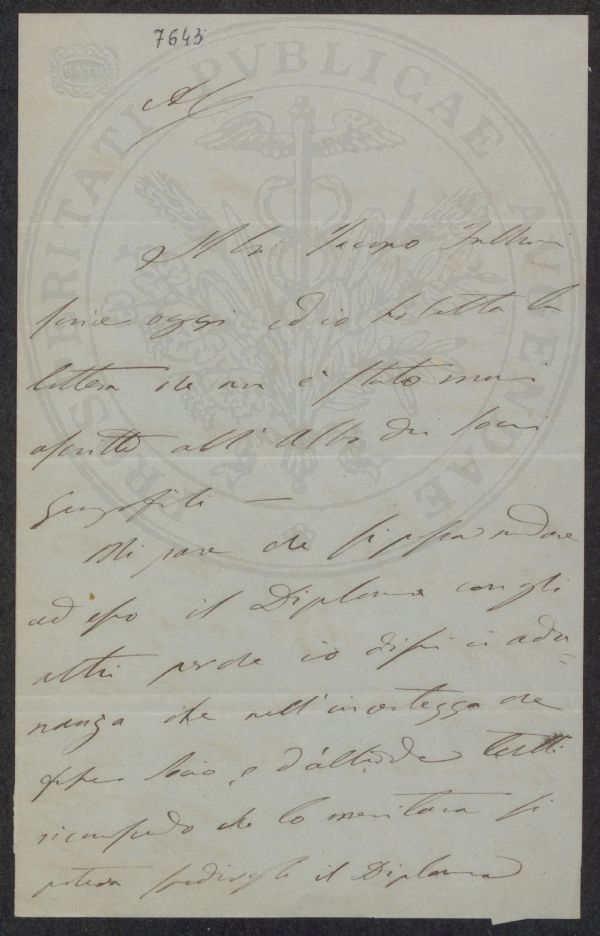 7643
BATH
PROSPERITATI PUBLICAE AUGENDAE
Al
Il Sig. Jacopo
scrive oggi ed io ho letta la
lettera che non è stato mai
ascritto all'Albo dei Soci
Georgofili —
Mi pare che si possa mandare
ad esso il Diploma con gli
altri perché io dissi in adu-
nanza che nell'incertezza che
fosse Socio, e d'altronde tutti
ricon che lo meritava si
poteva spedirgli il Diploma